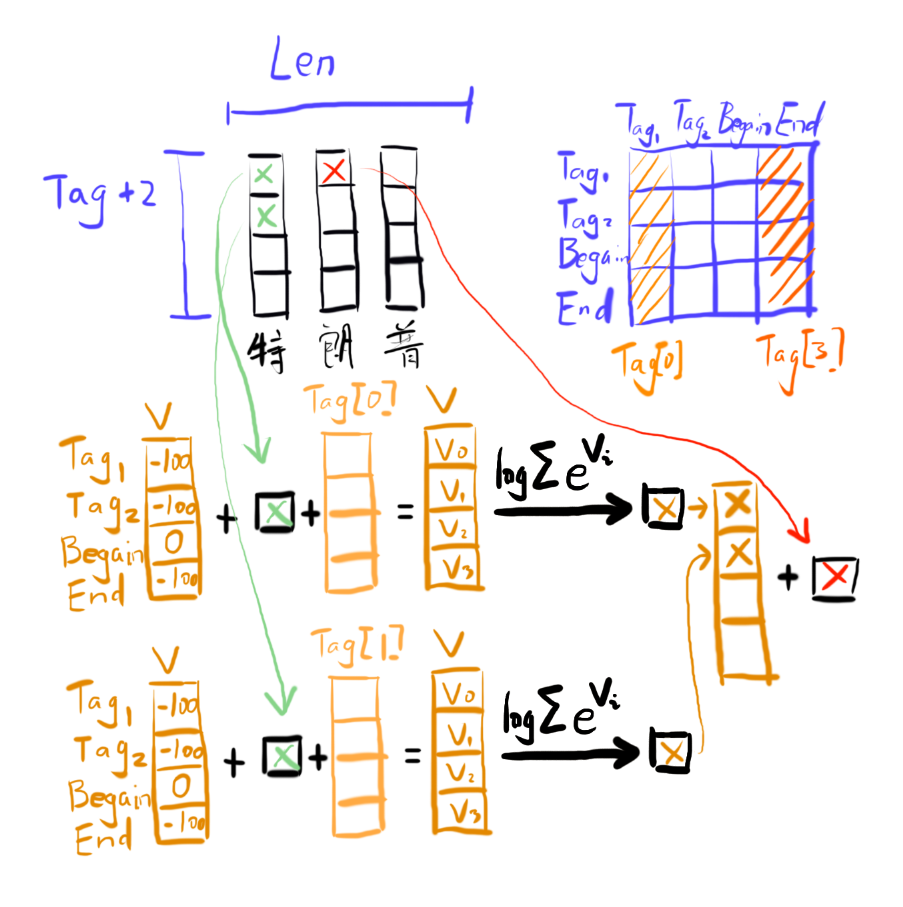 Len
Tag +2
特 朗 普
Tag₁ Tag₂ Begain End
Tag₁
Tag₂
Begain
End
Tag[0] Tag[3]
V
Tag₁ -100
Tag₂ -100
Begain 0
End -100
+ × +
Tag[0]
=
V
V₀
V₁
V₂
V₃
log∑e^Vᵢ
× → ×
×
+ ×
V
Tag₁ -100
Tag₂ -100
Begain 0
End -100
+ × +
Tag[1]
=
V
V₀
V₁
V₂
V₃
log∑e^Vᵢ
×